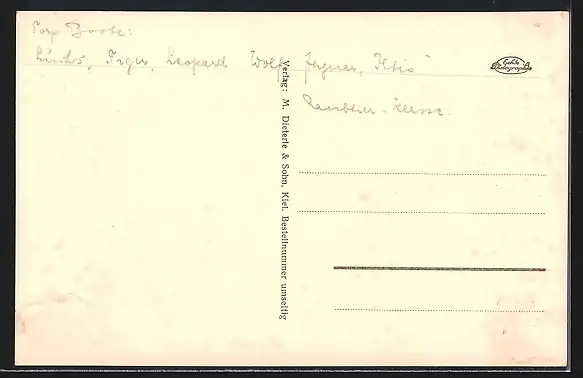 Torp Boote:
Luchs, Tiger, Leopard Wolf, Jaguar, Iltis
Raubtier-Klasse.
Verlag: M. Dieterle & Sohn, Kiel. Bestellnummer umseitig
Echte Photographie